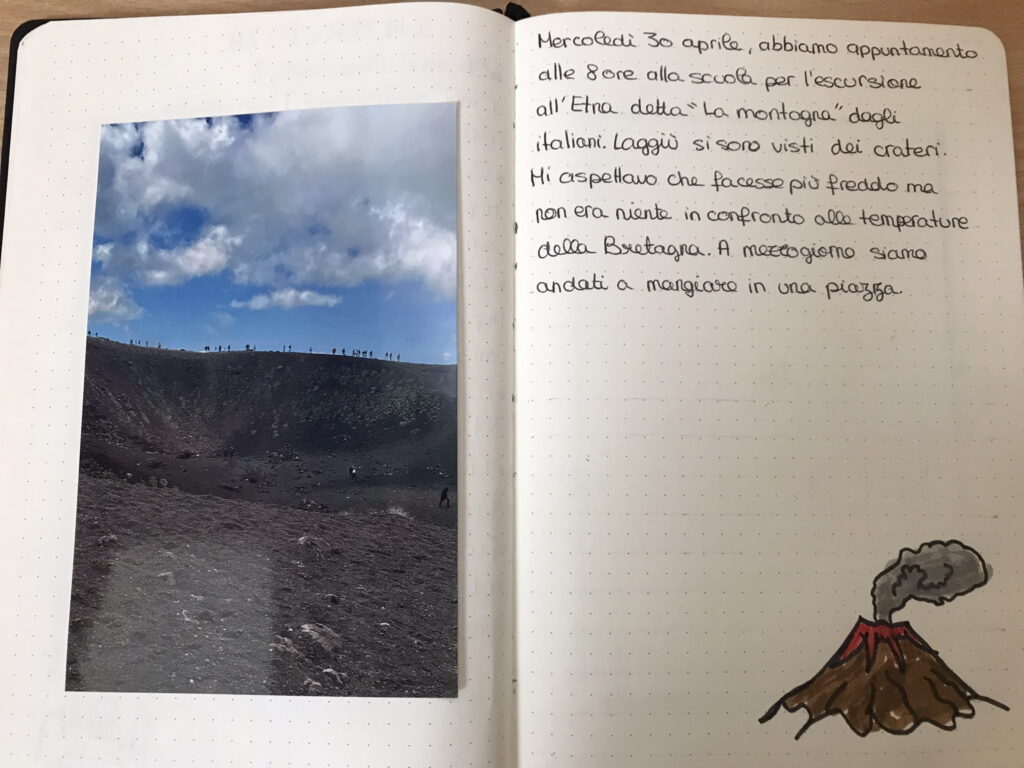 Mercoledì 30 aprile, abbiamo appuntamento
alle 8 ore alla scuola per l'escursione
all'Etna detta "La montagna" dagli
italiani. Laggiù si sono visti dei crateri.
Mi aspettavo che facesse più freddo ma
non era niente in confronto alle temperature
della Bretagna. A mezzogiorno siamo
andati a mangiare in una piazza.